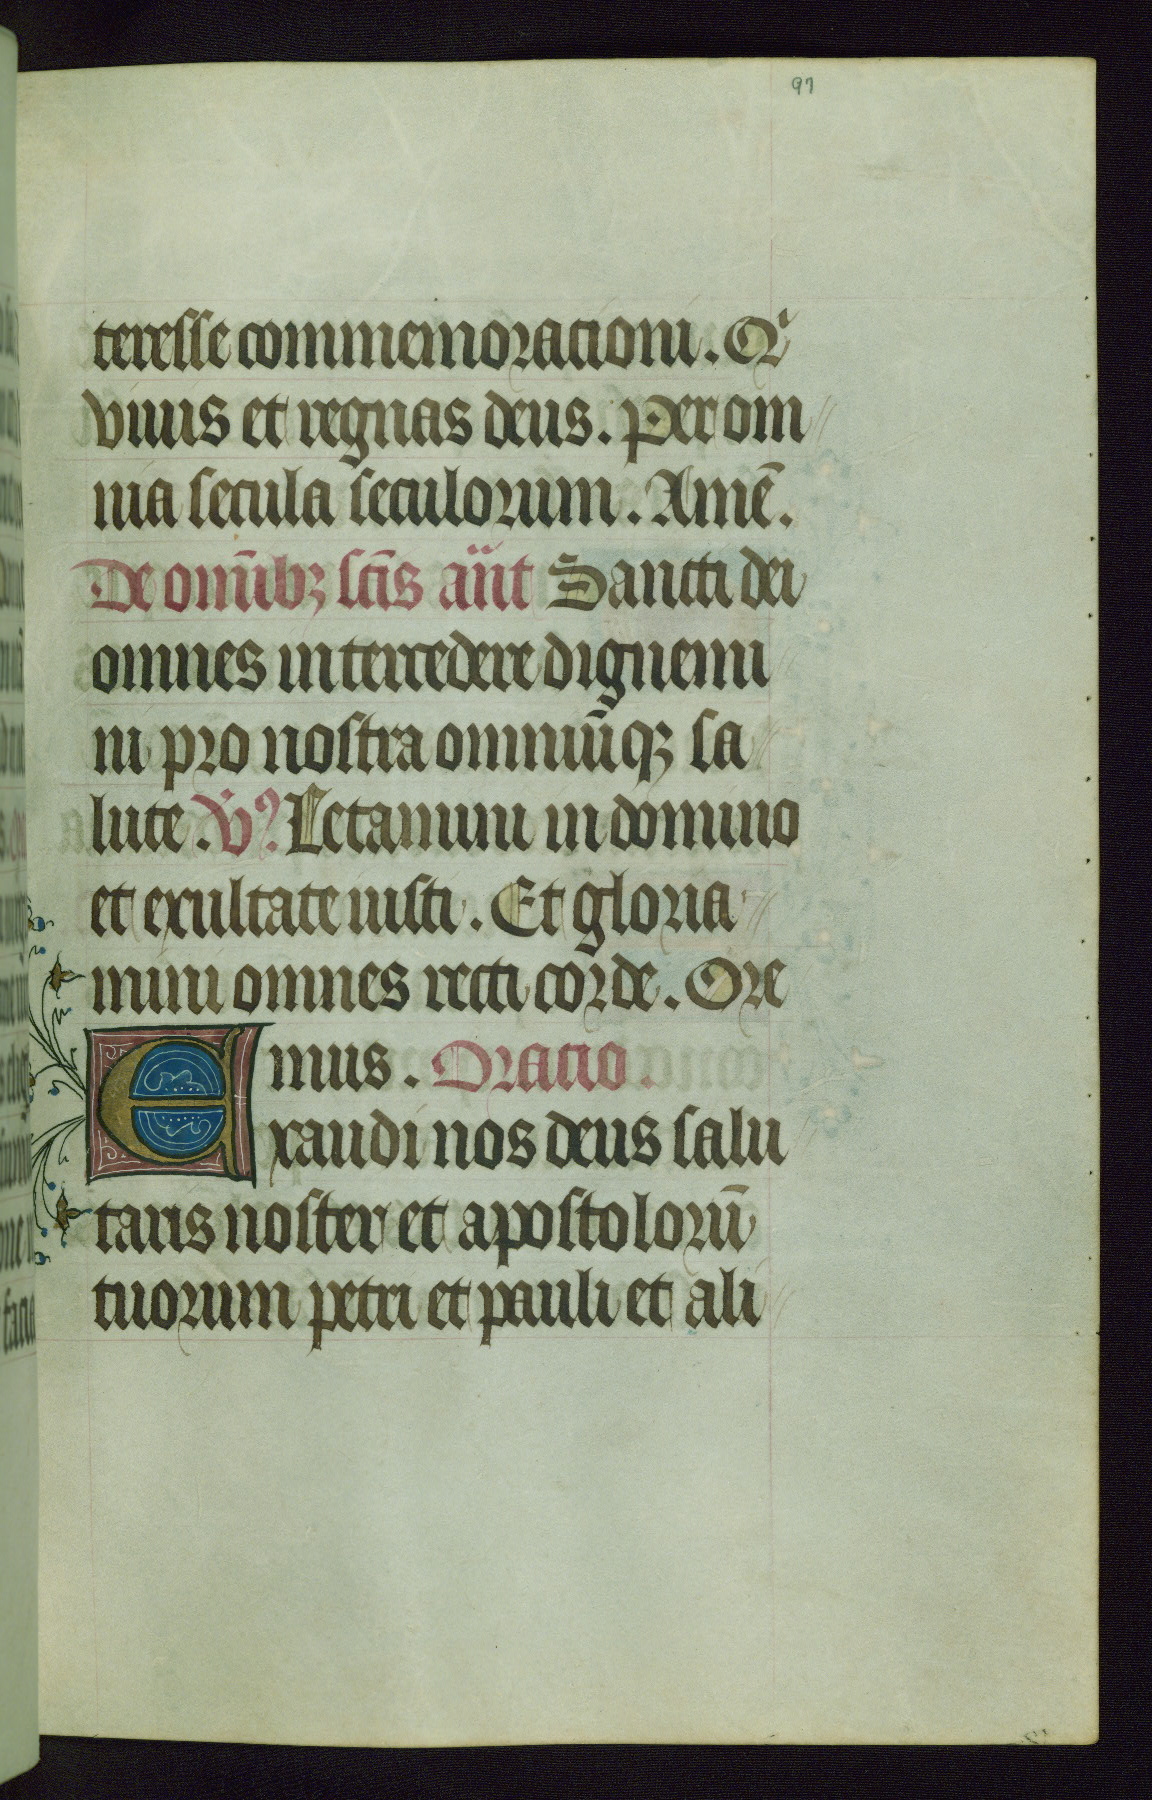 97
teresse commemorationi. Qi
viuis et regnas deus. Per om
nia secula seculorum. Amē.
De om̄ibꝫ sc̄is an̄t Sancti dei
omnes intercedere dignemi
ni pro nostra omniūqꝫ sa
lute. V̓ꝰ Letamini in domino
et exultate iusti. Et gloria
mini omnes recti corde. Ore
mus. Oratio.
Exaudi nos deus salu
taris noster et apostolorū
tuorum petri et pauli et ali